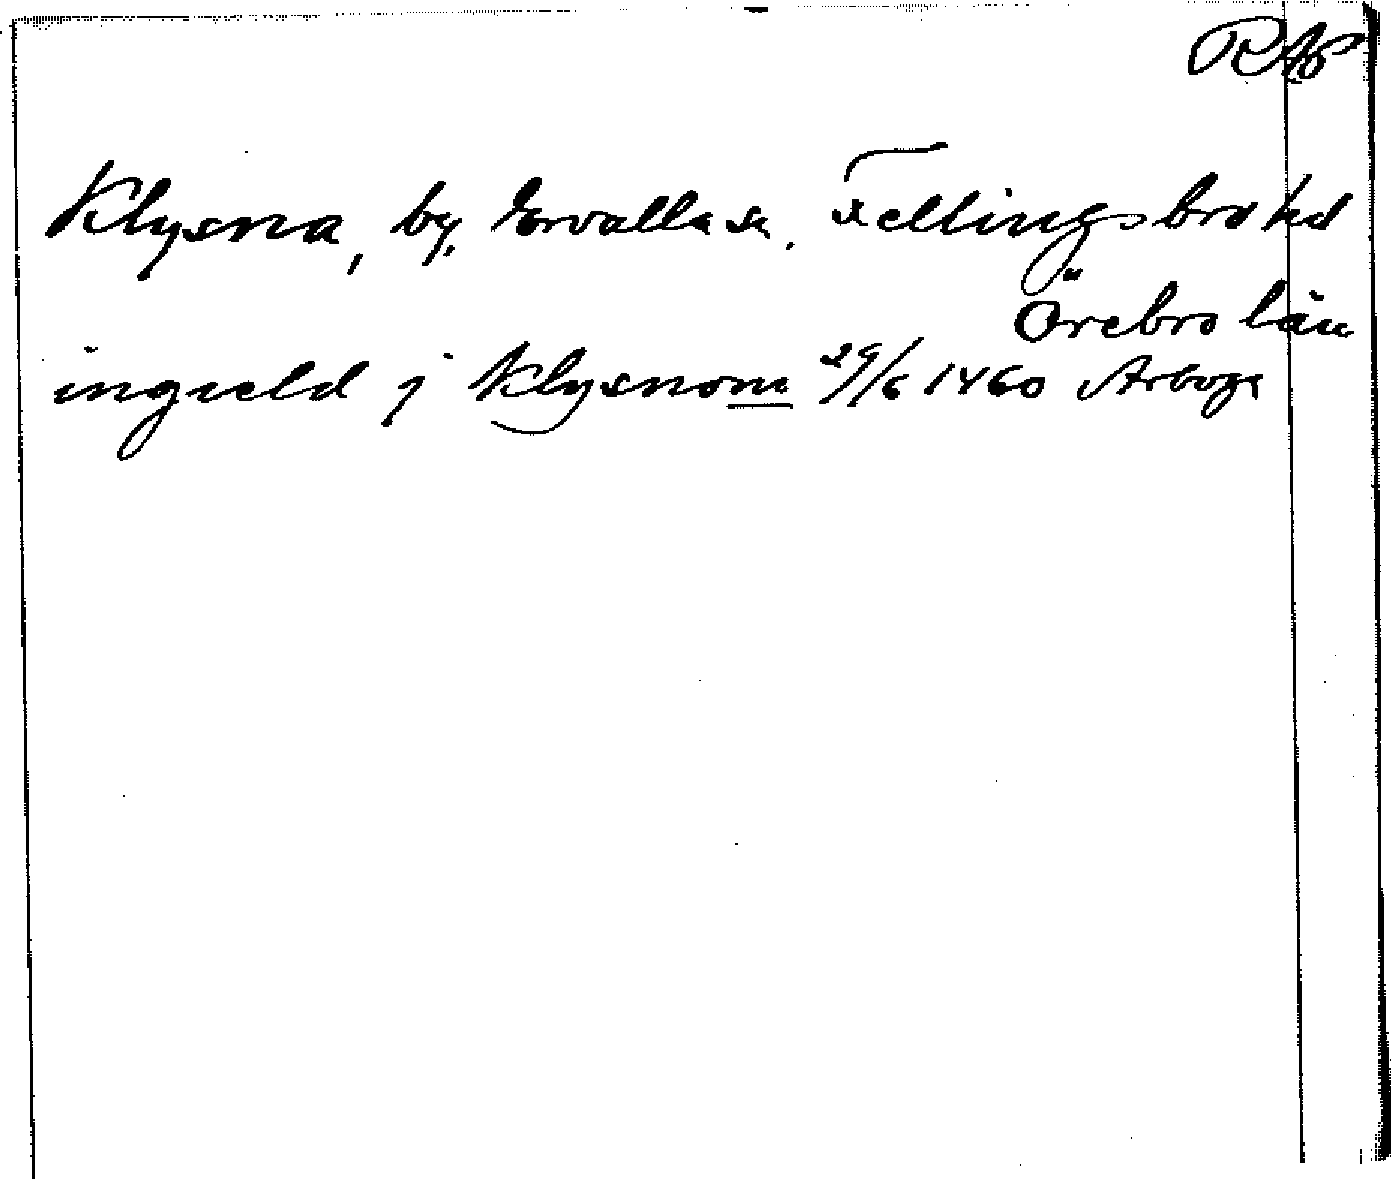 RAP
Klysna, by, Ervalla sn, Fellingsbro hd
Örebro län
ingield j Klysnom 29/6 1460 Arboga